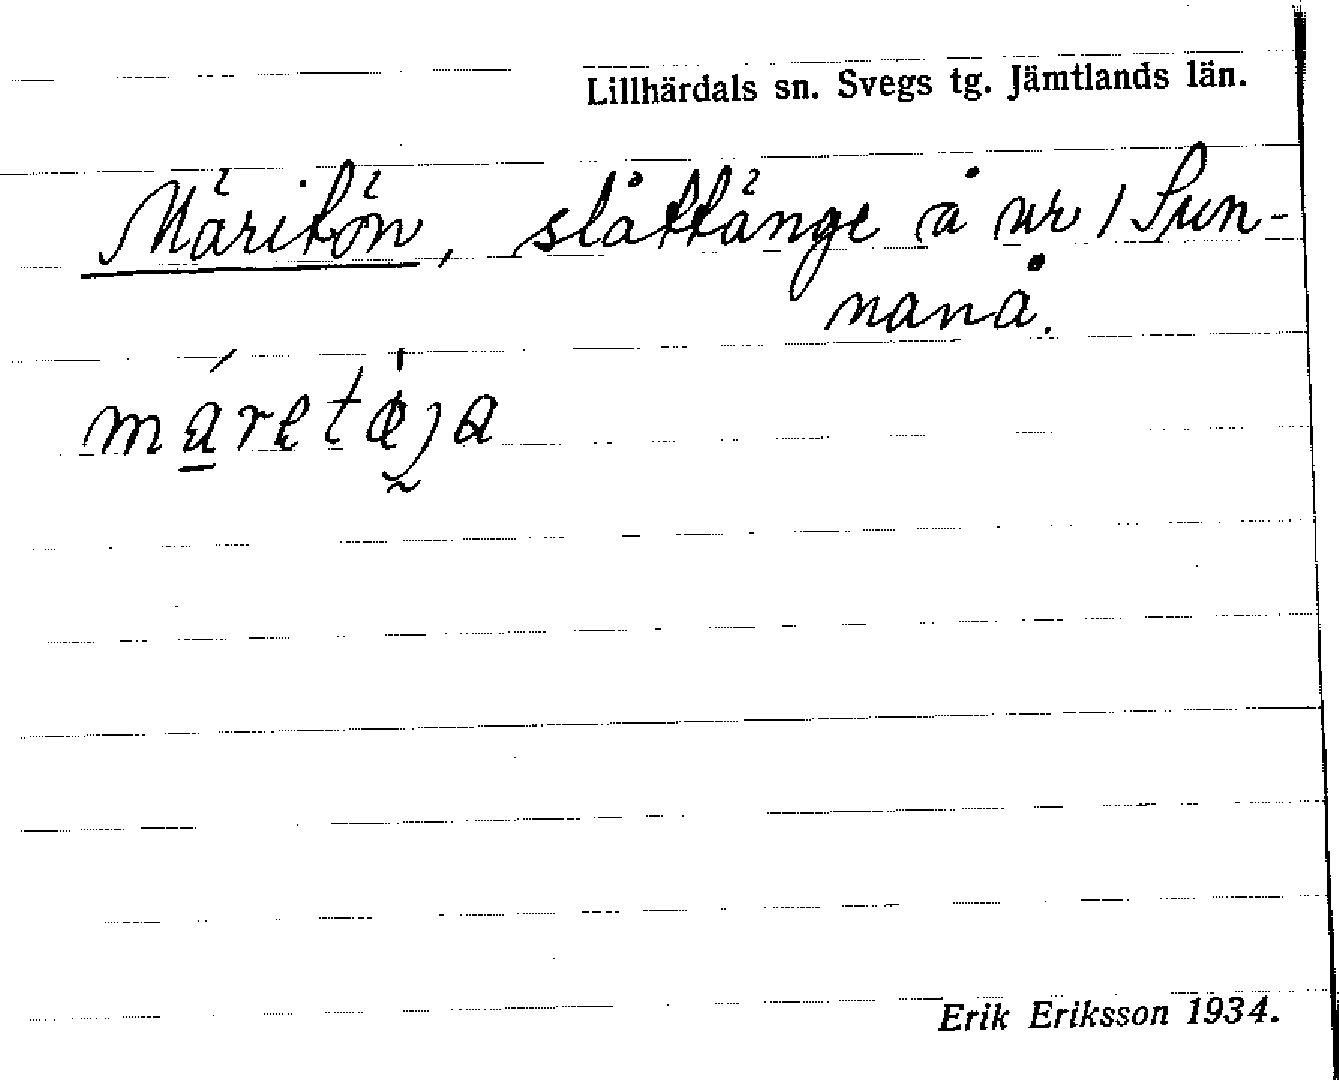 Lillhärdals sn. Svegs tg. Jämtlands län.
Märitön, slåttänge å nr 1 Sun-
nanå.
Erik Eriksson 1934.